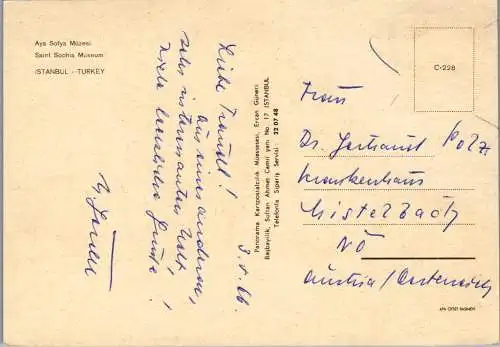 Aya Sofya Müzesi
Saint Sophia Museum
ISTANBUL - TURKEY
C-228
3. 5. 66.
Liebe Traudl!
Aus einer anderen,
sehr interessanten Welt,
viele herzliche Grüße
Panorama Kartpostalcılık Müessesesi, Ercan Güneri
Başbayilik, Sultan Ahmet Camii yanı No. 17 ISTANBUL
Telefonla Sipariş Servisi 22 07 48
Frau
Dr. Gertraud Polz
Krankenhaus
Mistelbach
NÖ
Austria/Oesterreich